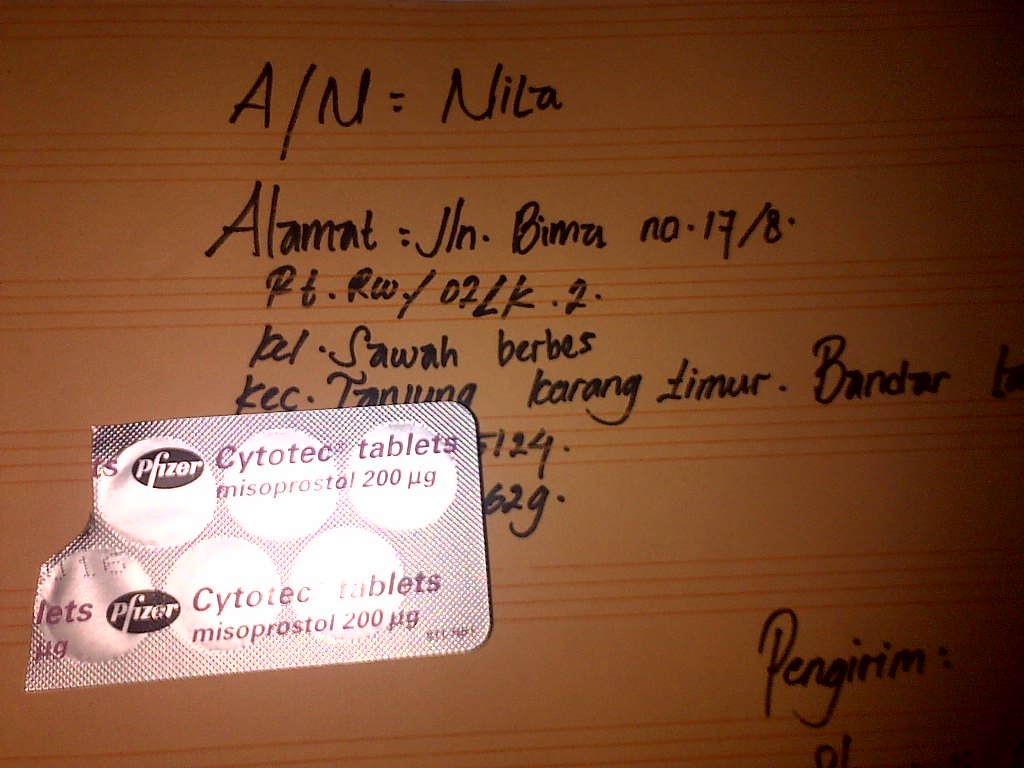 A/N = Nila
Alamat = Jln. Bima no. 17/8.
Rt. Rw / 02 LK. 2.
Kel. Sawah berbes
Kec. Tanjung karang timur. Bandar
5124.
629.
Pfizer Cytotec® tablets
misoprostol 200 µg
lets Pfizer Cytotec tablets
µg misoprostol 200 µg
Pengirim: